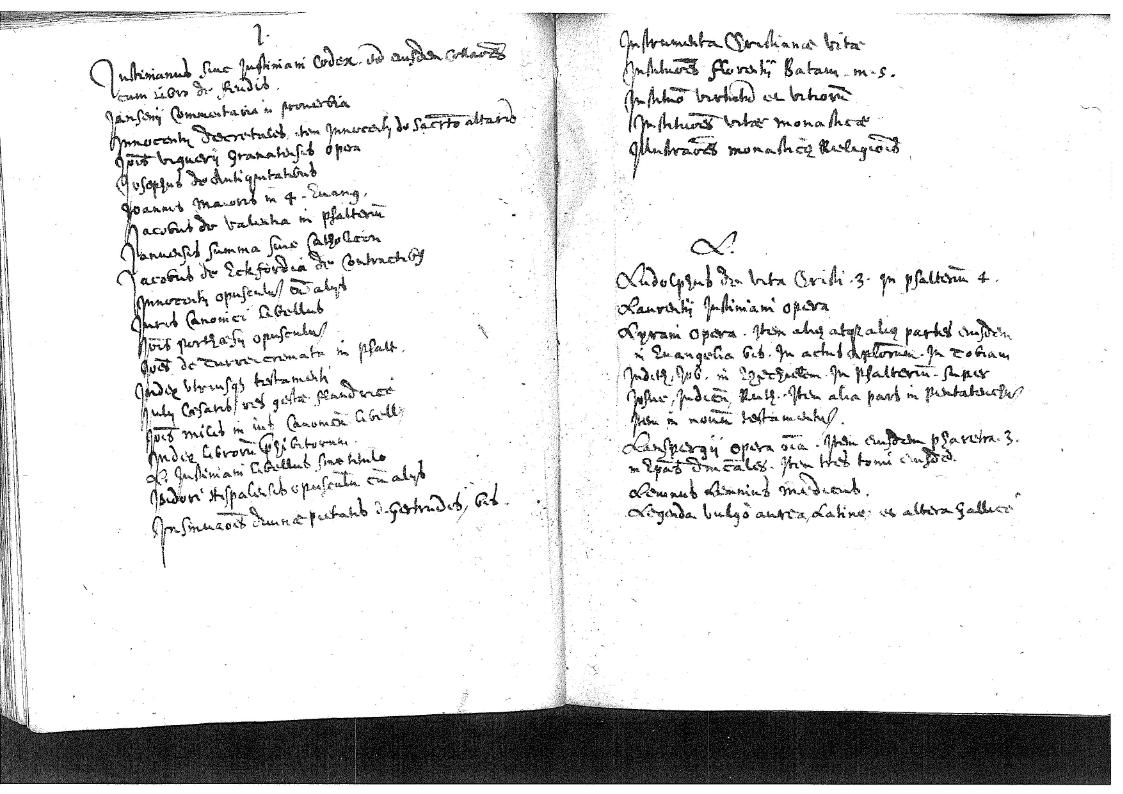 I.
Justinianus sive Justiniani Codex. Ad eusdem
cum libro de feudis.
Jansenij Commentaria in proverbia
Innocentij decretales, item Innocentij de Sacrto altaris
Jois viguerij Granatensis opera
Josephus de Antiquitatibus
Joannis Maioris in 4. Euang.
Jacobus de valentia in psalteriū
Januensis summa sive Catholicon
Jacobus de Eckfordia de Contractibus
Innocentij opusculū cū alijs
Juris Canonici libellus
Jois porthaesij opusculū
Joes de Turrecremata in psalt.
Index utriusqz testamenti
Julij Caesaris res gestae flandricè
Jois milis in Canonū libell
Index librorū phibitorum.
L. Justiniani libellus sine titulo
Isidori Hispalensis opusculū cū alijs
Insinuaōes divinae pietatis d. Gertrudis, bis.
Instrumenta Christianae vitae
Instituoēs florentij Batavi. m. s.
Institutiō virtutū et vitiorū
Instituoēs vitae monasticae
Illustraoēs monasticae Religiois
L.
Ludolphus de vita Christi. 3. In psalteriū 4.
Laurentij Justiniani opera
Lyrani opera. Item aliq atqz aliq partes eiusdem
in Euangelia bis. In actus Aplorum. In Tobiam
Judith, Job. in Ezechielem. In Psalteriū. super
Josue, Judicū, Ruth. Item alia pars in Pentateuchū
Item in novū testamentū.
Lanspergij opera oīa. Item eiusdem pharetra. 3.
in Epās dnīcales. Item tres tomi eiusdē.
Levinus Lemnius medicus.
Legenda vulgò aurea, Latine, et altera gallicè